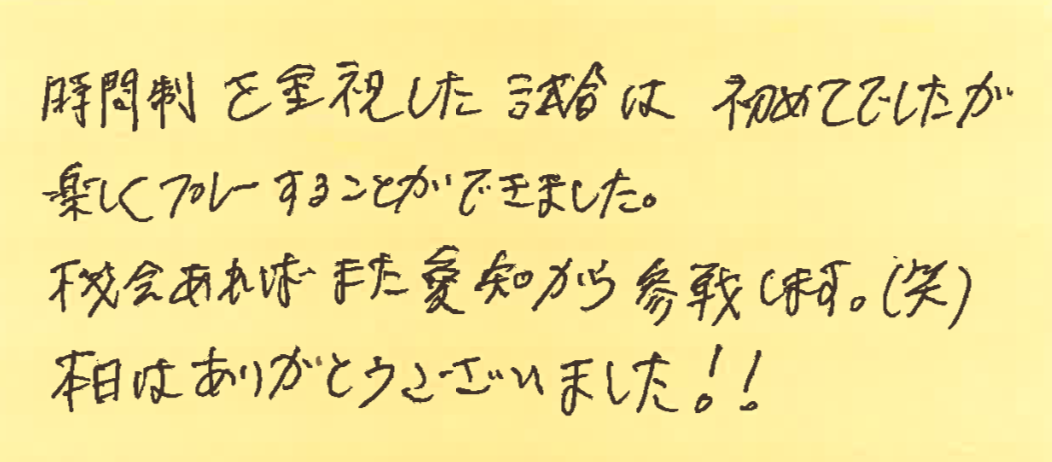 時間制を重視した試合は 初めてでしたが
楽しくプレーすることができました。
機会あればまた愛知から参戦します。(笑)
本日はありがとうございました!!